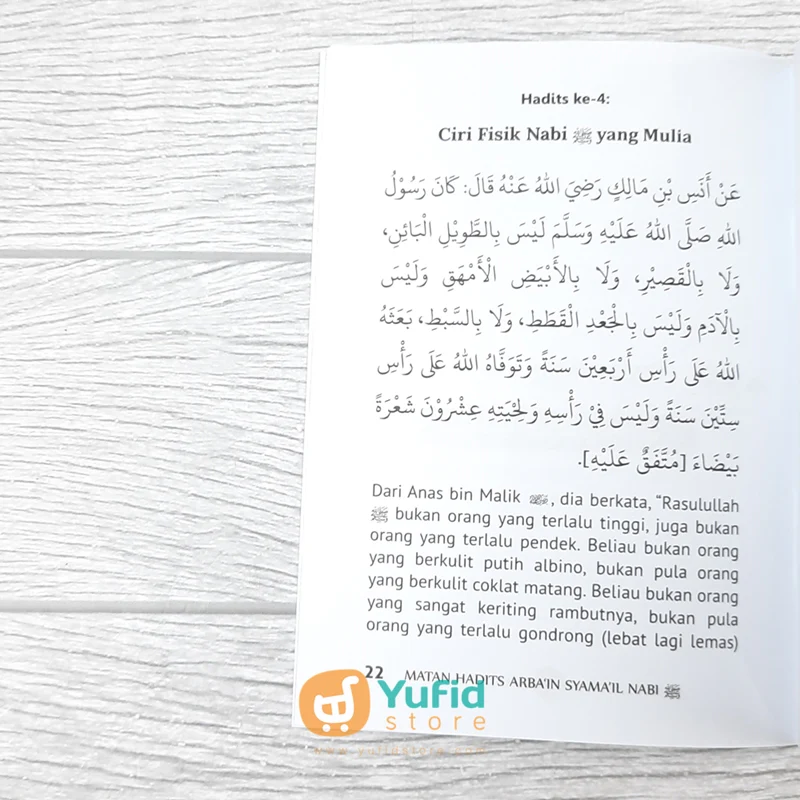 Hadits ke-4:
Ciri Fisik Nabi ﷺ yang Mulia
عَنْ أَنَسِ بْنِ مَالِكٍ رَضِيَ اللهُ عَنْهُ قَالَ: كَانَ رَسُوْلُ
اللهِ صَلَّى اللهُ عَلَيْهِ وَسَلَّمَ لَيْسَ بِالطَّوِيْلِ الْبَائِنِ،
وَلَا بِالْقَصِيْرِ، وَلَا بِالْأَبْيَضِ الْأَمْهَقِ وَلَيْسَ
بِالْآدَمِ وَلَيْسَ بِالْجَعْدِ الْقَطَطِ، وَلَا بِالسَّبْطِ، بَعَثَهُ
اللهُ عَلَى رَأْسِ أَرْبَعِيْنَ سَنَةً وَتَوَفَّاهُ اللهُ عَلَى رَأْسِ
سِتِّيْنَ سَنَةً وَلَيْسَ فِيْ رَأْسِهِ وَلِحْيَتِهِ عِشْرُوْنَ شَعْرَةً
بَيْضَاءَ [مُتَّفَقٌ عَلَيْهِ].
Dari Anas bin Malik, dia berkata, “Rasulullah
ﷺ bukan orang yang terlalu tinggi, juga bukan
orang yang terlalu pendek. Beliau bukan orang
yang berkulit putih albino, bukan pula orang
yang berkulit coklat matang. Beliau bukan orang
yang sangat keriting rambutnya, bukan pula
orang yang terlalu gondrong (lebat lagi lemas)
22 MATAN HADITS ARBA'IN SYAMA'IL NABI ﷺ
Yufid
store
www.yufidstore.com